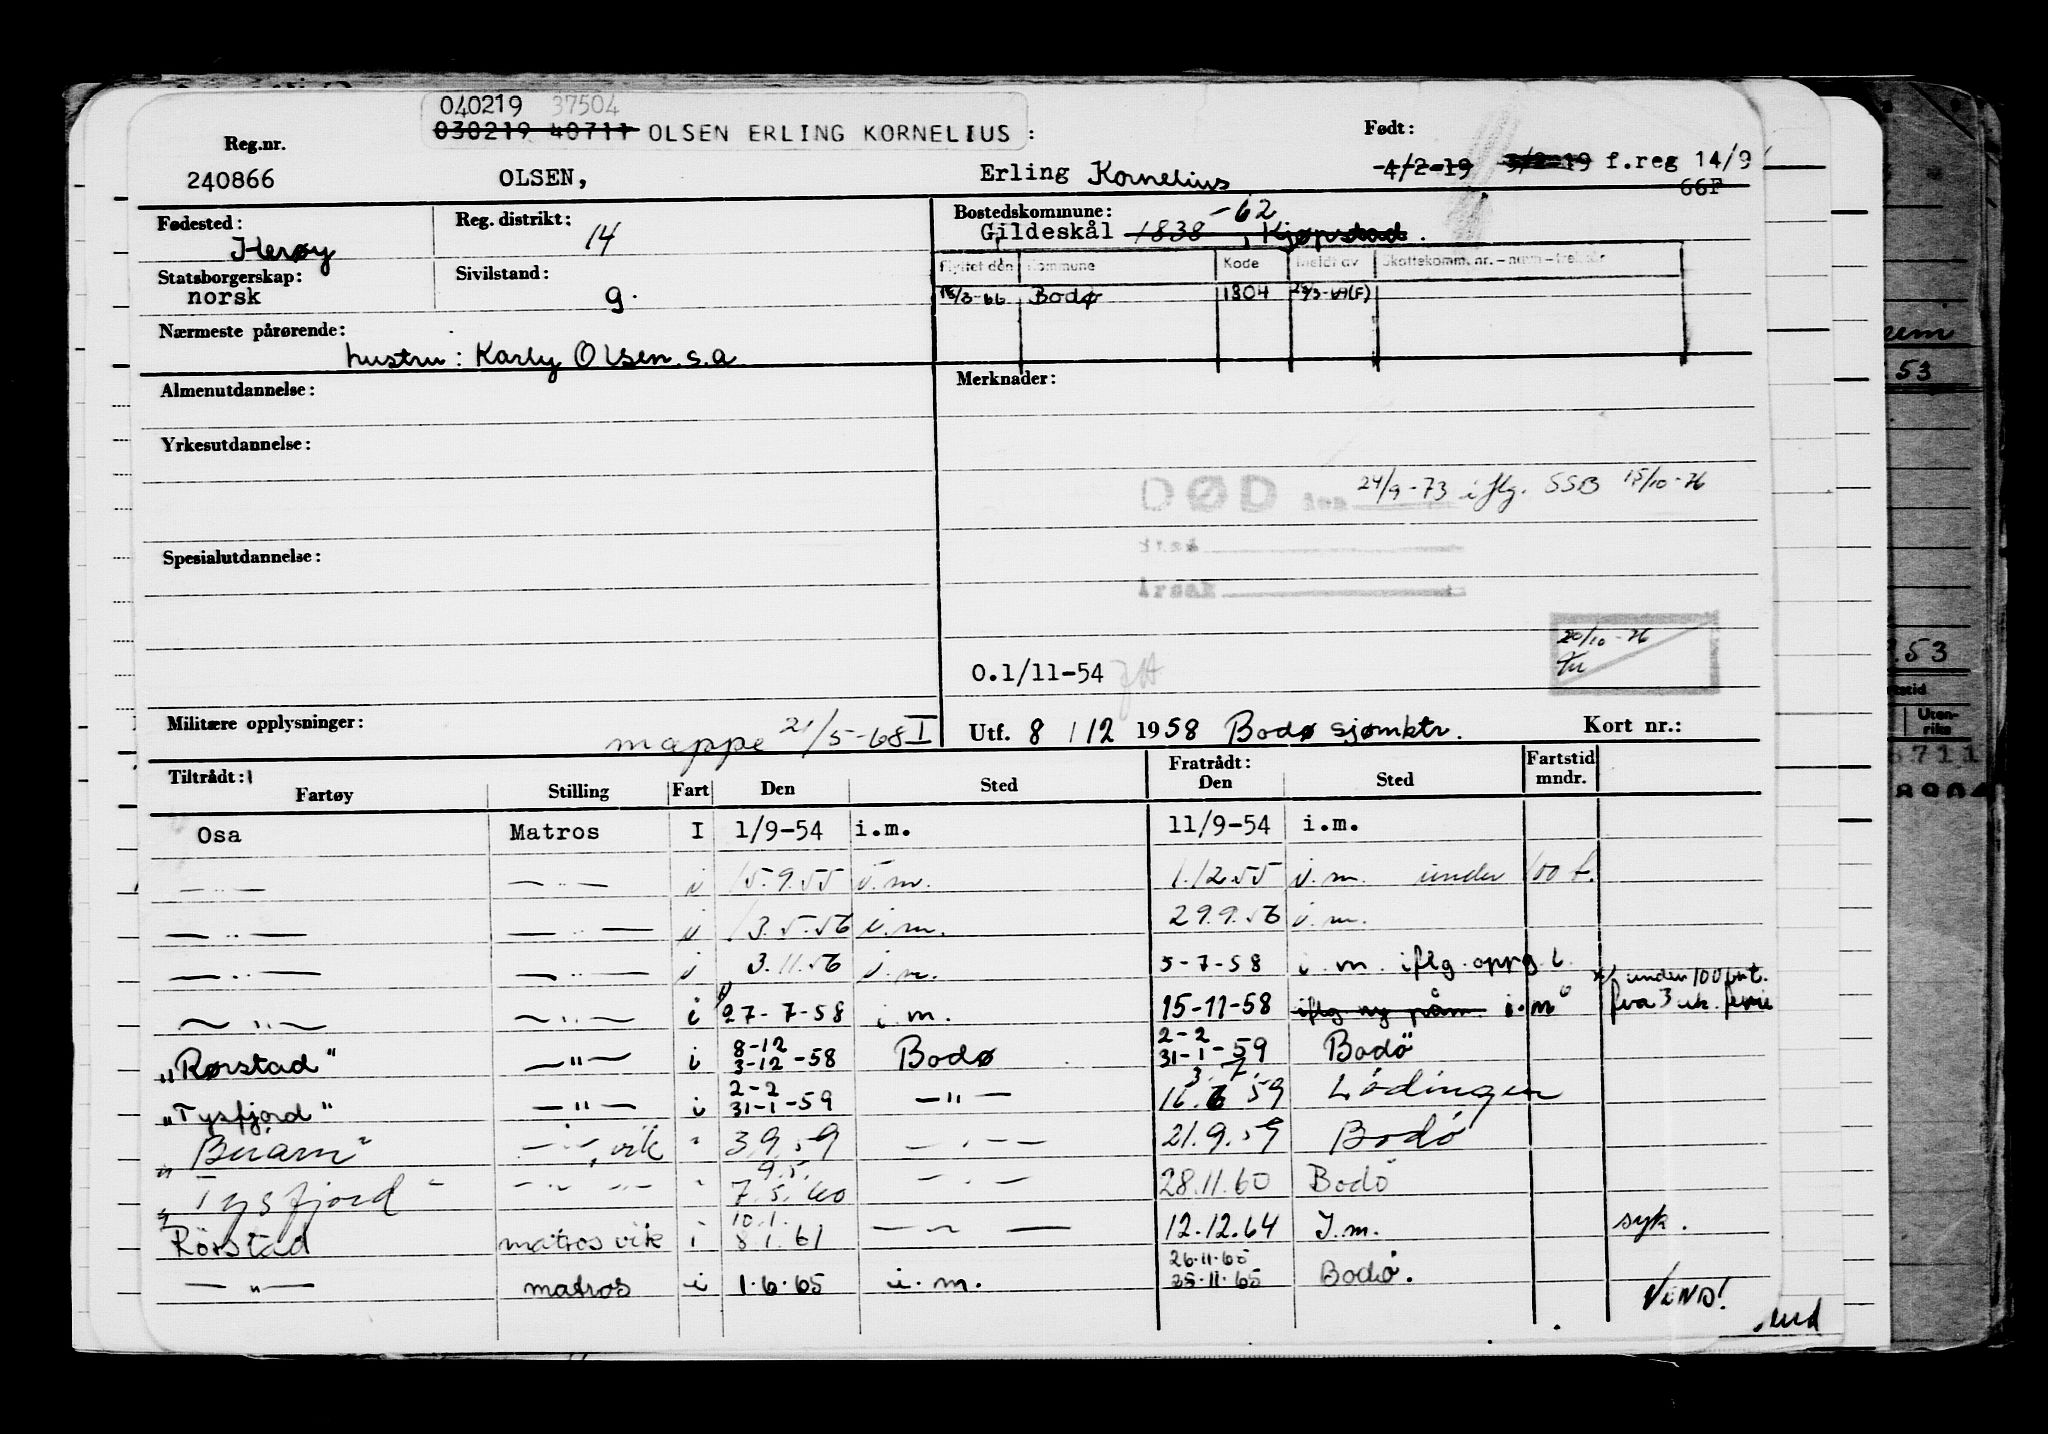 040219 37504
030219 40711 OLSEN ERLING KORNELIUS :
Reg.nr. Født:
240866 OLSEN, Erling Kornelius 4/2-19 3/2-19 f.reg 14/9
66F
Fødested: Reg. distrikt: Bostedskommune: -62
Herøy 14 Gildeskål 1838 , Kjøpstad .
Statsborgerskap: Sivilstand: Flyttet den Kommune Kode Meldt av Skattekomm. nr. - navn -
norsk g. 15/3-66 Bodø 1804
Nærmeste pårørende:
hustru: Karly Olsen s.a
Almenutdannelse: Merknader:
Yrkesutdannelse:
DØD den 24/9-73 iflg. SSB 15/10-76
sted
Spesialutdannelse:
årsak
20/10-76
0.1/11-54
Militære opplysninger: mappe 21/5-68 I Utf. 8 / 12 1958 Bodø sjømktr. Kort nr.:
Tiltrådt: Fratrådt: Fartstid
Fartøy Stilling Fart Den Sted Den Sted mndr.
Osa Matros I 1/9-54 i.m. 11/9-54 i.m.
— " — — " — i 15.9.55 i.m. 1.12.55 i.m. under 100 t.
— " — — " — i 13.5.56 i.m. 29.9.56 i.m.
— " — — " — i 3.11.56 i.m. 5-7-58 i.m. iflg. oppg.
x/ under 100 brt.
— " — — " — i 27-7-58 i.m. 15-11-58 iflg ny påm. i.m. fra 3 uk. ferie
8-12 2-2
"Rørstad" — " — i 3-12-58 Bodø 31-1-59 Bodø
2-2 3. 7.
"Tysfjord" — " — i 31-1-59 — " — 16.6 59 Lødingen
"Beiarn" — " — vik " 3.9.59 — " — 21.9.59 Bodø
9.5.
"Tysfjord" — " — " — " 7.5.60 — " — 28.11.60 Bodø
10.1.
Rørstad matros vik i 8.1.61 — " — 12.12.64 I.m. syk.
26.11.65
— " — matros i 1.6.65 i.m. 25.11.65 Bodø.
VEND!
53
.53
Uten-
riks